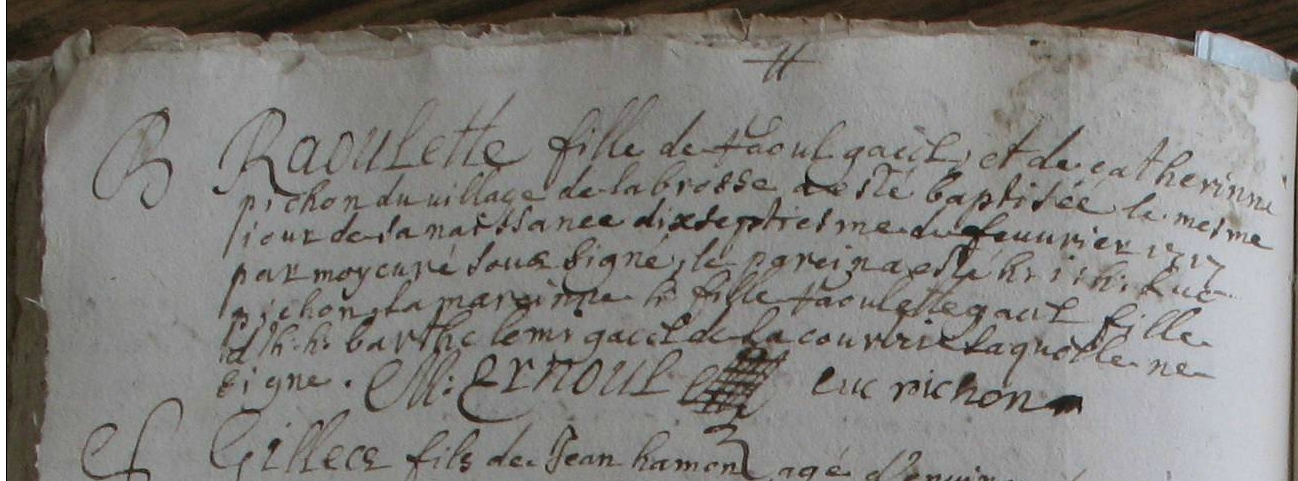 B Raoulette fille de raoul gaül, et de catherinne
pichon du village de la brosse a esté baptisée le mesme
iour de sa naissance dixseptiesme du feuurier 1717
par moy curé sous signé, le parein a esté h: h: Luc
pichon, la mareinne h: fille raoulette gaul fille
d'h: h: barthelemi gaül de la courrie laquelle ne
signe. M: ERNOUL luc pichon
Gilles fils de Jean hamon agé d'enuiron